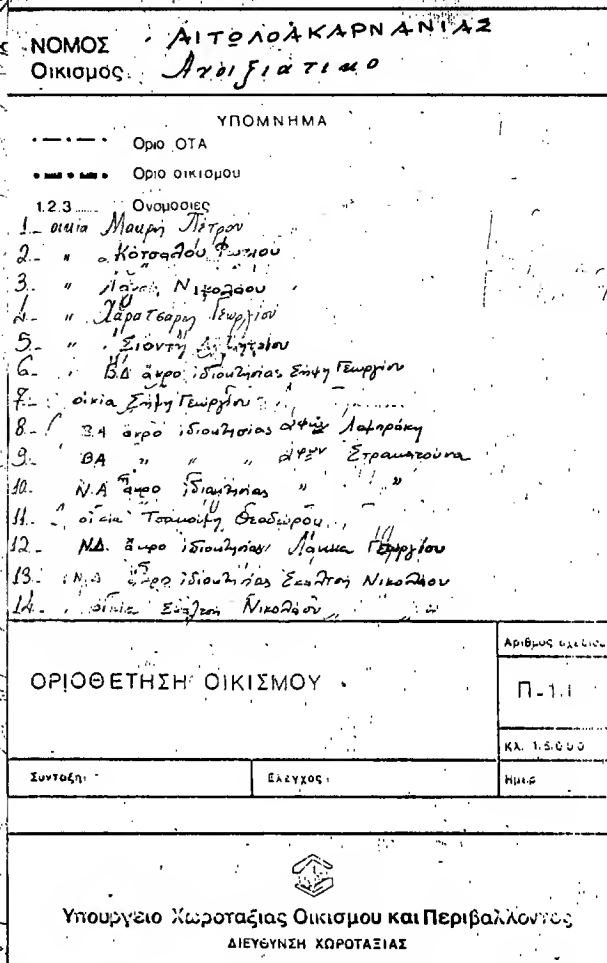 ΝΟΜΟΣ ΑΙΤΩΛΟΑΚΑΡΝΑΝΙΑΣ
Οικισμος Ανοιξιατικο
ΥΠΟΜΝΗΜΑ
Οριο ΟΤΑ
Οριο οικισμου
1.2.3 ...... Ονομασιες
1.- οικία Μακρή Πέτρου
2.- " Κότσαλου Φωτίου
3.- " Νικολάου
4.- " Χαρατσάρη Γεωργίου
5.- " Σιόντη
6.- ΒΔ άκρο ιδιοκτησίας Σήψη Γεωργίου
7.- οικία Σήψη Γεωργίου
8.- ΒΑ άκρο ιδιοκτησίας αφών Λαμπράκη
9.- ΒΑ " " " αφών Στρακατούνα
10. Ν.Α άκρο ιδιοκτησίας " "
11.- οικία Τσακούμη Θεοδώρου
12.- ΝΔ. άκρο ιδιοκτησίας Λάππα Γεωργίου
13.- Ν.Δ άκρο ιδιοκτησίας Σκαλτσή Νικολάου
14.- οικία Σκαλτσή Νικολάου
ΟΡΙΟΘΕΤΗΣΗ ΟΙΚΙΣΜΟΥ
Αριθμος σχεδιου
Π-1.1
ΚΛ. 1:5.000
Συνταξη:
Ελεγχος:
Ημερ
Υπουργειο Χωροταξιας Οικισμου και Περιβαλλοντος
ΔΙΕΥΘΥΝΣΗ ΧΩΡΟΤΑΞΙΑΣ